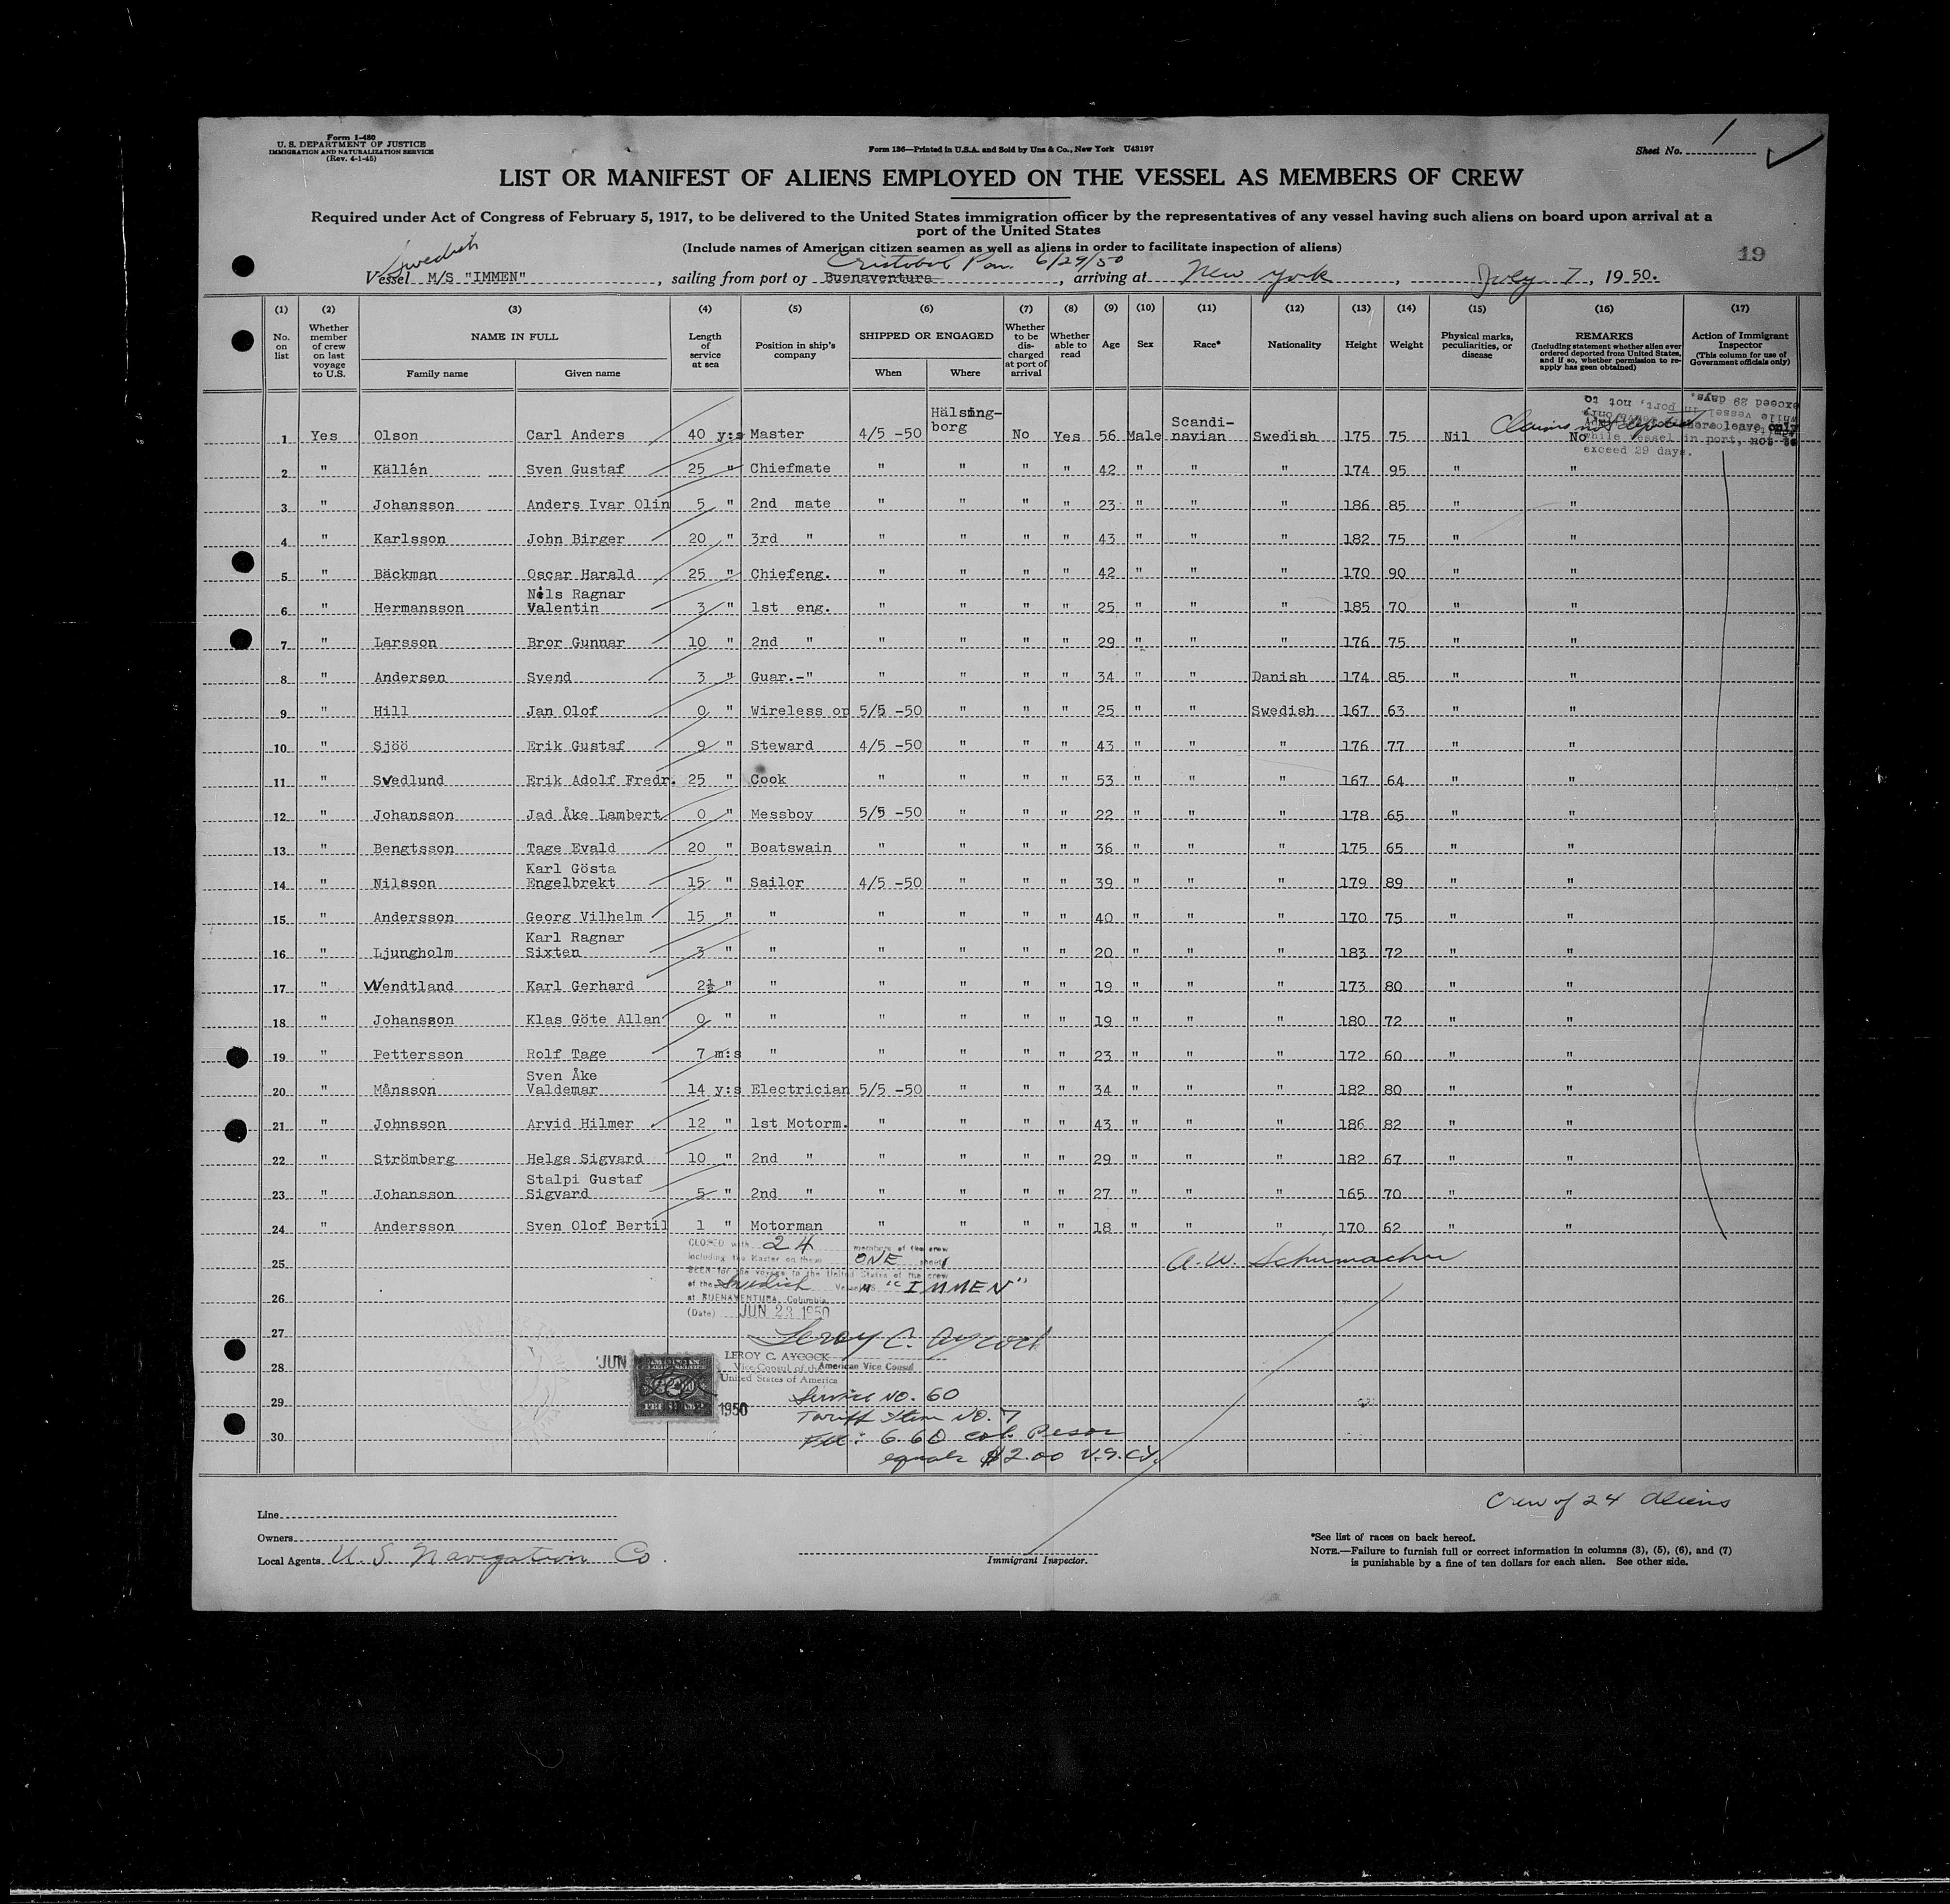 Form I-480
U. S. DEPARTMENT OF JUSTICE
IMMIGRATION AND NATURALIZATION SERVICE
(Rev. 4-1-45)
Form 136—Printed in U.S.A. and Sold by Unz & Co., New York U43197
Sheet No. 1
LIST OR MANIFEST OF ALIENS EMPLOYED ON THE VESSEL AS MEMBERS OF CREW
Required under Act of Congress of February 5, 1917, to be delivered to the United States immigration officer by the representatives of any vessel having such aliens on board upon arrival at a
port of the United States
(Include names of American citizen seamen as well as aliens in order to facilitate inspection of aliens)
19
Swedish
Cristobal Pan. 6/29/50
Vessel M/S "IMMEN", sailing from port of Buenaventura, arriving at New York, July 7, 1950.
(1) (2) (3) (4) (5) (6) (7) (8) (9) (10) (11) (12) (13) (14) (15) (16) (17)
No. on list
Whether member of crew on last voyage to U.S.
NAME IN FULL
Family name
Given name
Length of service at sea
Position in ship's company
SHIPPED OR ENGAGED
When
Where
Whether to be discharged at port of arrival
Whether able to read
Age
Sex
Race*
Nationality
Height
Weight
Physical marks, peculiarities, or disease
REMARKS
(Including statement whether alien ever ordered deported from United States, and if so, whether permission to re-apply has been obtained)
Action of Immigrant Inspector
(This column for use of Government officials only)
1 Yes Olson Carl Anders 40 y:s Master 4/5 -50 Hälsingborg No Yes 56 Male Scandinavian Swedish 175 75 Nil No
Claims not deported
shore leave only
while vessel in port, not to
exceed 29 days.
2 " Källén Sven Gustaf 25 " Chiefmate " " " " 42 " " " 174 95 " "
3 " Johansson Anders Ivar Olin 5 " 2nd mate " " " " 23 " " " 186 85 " "
4 " Karlsson John Birger 20 " 3rd " " " " " 43 " " " 182 75 " "
5 " Bäckman Oscar Harald 25 " Chiefeng. " " " " 42 " " " 170 90 " "
6 " Hermansson Nils Ragnar Valentin 3 " 1st eng. " " " " 25 " " " 185 70 " "
7 " Larsson Bror Gunnar 10 " 2nd " " " " " 29 " " " 176 75 " "
8 " Andersen Svend 3 " Guar.-" " " " " 34 " " Danish 174 85 " "
9 " Hill Jan Olof 0 " Wireless op 5/5 -50 " " " 25 " " Swedish 167 63 " "
10 " Sjöö Erik Gustaf 9 " Steward 4/5 -50 " " " 43 " " " 176 77 " "
11 " Svedlund Erik Adolf Fredr. 25 " Cook " " " " 53 " " " 167 64 " "
12 " Johansson Jad Åke Lambert 0 " Messboy 5/5 -50 " " " 22 " " " 178 65 " "
13 " Bengtsson Tage Evald 20 " Boatswain " " " " 36 " " " 175 65 " "
14 " Nilsson Karl Gösta Engelbrekt 15 " Sailor 4/5 -50 " " " 39 " " " 179 89 " "
15 " Andersson Georg Vilhelm 15 " " " " " " 40 " " " 170 75 " "
16 " Ljungholm Karl Ragnar Sixten 3 " " " " " " 20 " " " 183 72 " "
17 " Wendtland Karl Gerhard 2½ " " " " " " 19 " " " 173 80 " "
18 " Johansson Klas Göte Allan 0 " " " " " " 19 " " " 180 72 " "
19 " Pettersson Rolf Tage 7 m:s " " " " " 23 " " " 172 60 " "
20 " Månsson Sven Åke Valdemar 14 y:s Electrician 5/5 -50 " " " 34 " " " 182 80 " "
21 " Johnsson Arvid Hilmer 12 " 1st Motorm. " " " " 43 " " " 186 82 " "
22 " Strömberg Helge Sigvard 10 " 2nd " " " " " 29 " " " 182 67 " "
23 " Johansson Stalpi Gustaf Sigvard 5 " 2nd " " " " " 27 " " " 165 70 " "
24 " Andersson Sven Olof Bertil 1 " Motorman " " " " 18 " " " 170 62 " "
25
26
27
28
29
30
CLOSED with 24 members of the crew
including the Master on these ONE sheet
SEEN for the voyage to the United States of the crew
of the Swedish Vessel "IMMEN"
at BUENAVENTURA, Colombia
(Date) JUN 23 1950
A. W. Schumacher
Leroy C. Aycock
LEROY C. AYCOCK
Vice Consul of the American Vice Consul
United States of America
JUN
1950
Service No. 60
Tariff Item No. 7
Fee: 6.60 col. Pesos
equals $2.00 U.S.Cy.
Crew of 24 Aliens
Line
Owners
Local Agents U.S. Navigation Co.
Immigrant Inspector.
*See list of races on back hereof.
NOTE.—Failure to furnish full or correct information in columns (3), (5), (6), and (7)
is punishable by a fine of ten dollars for each alien. See other side.